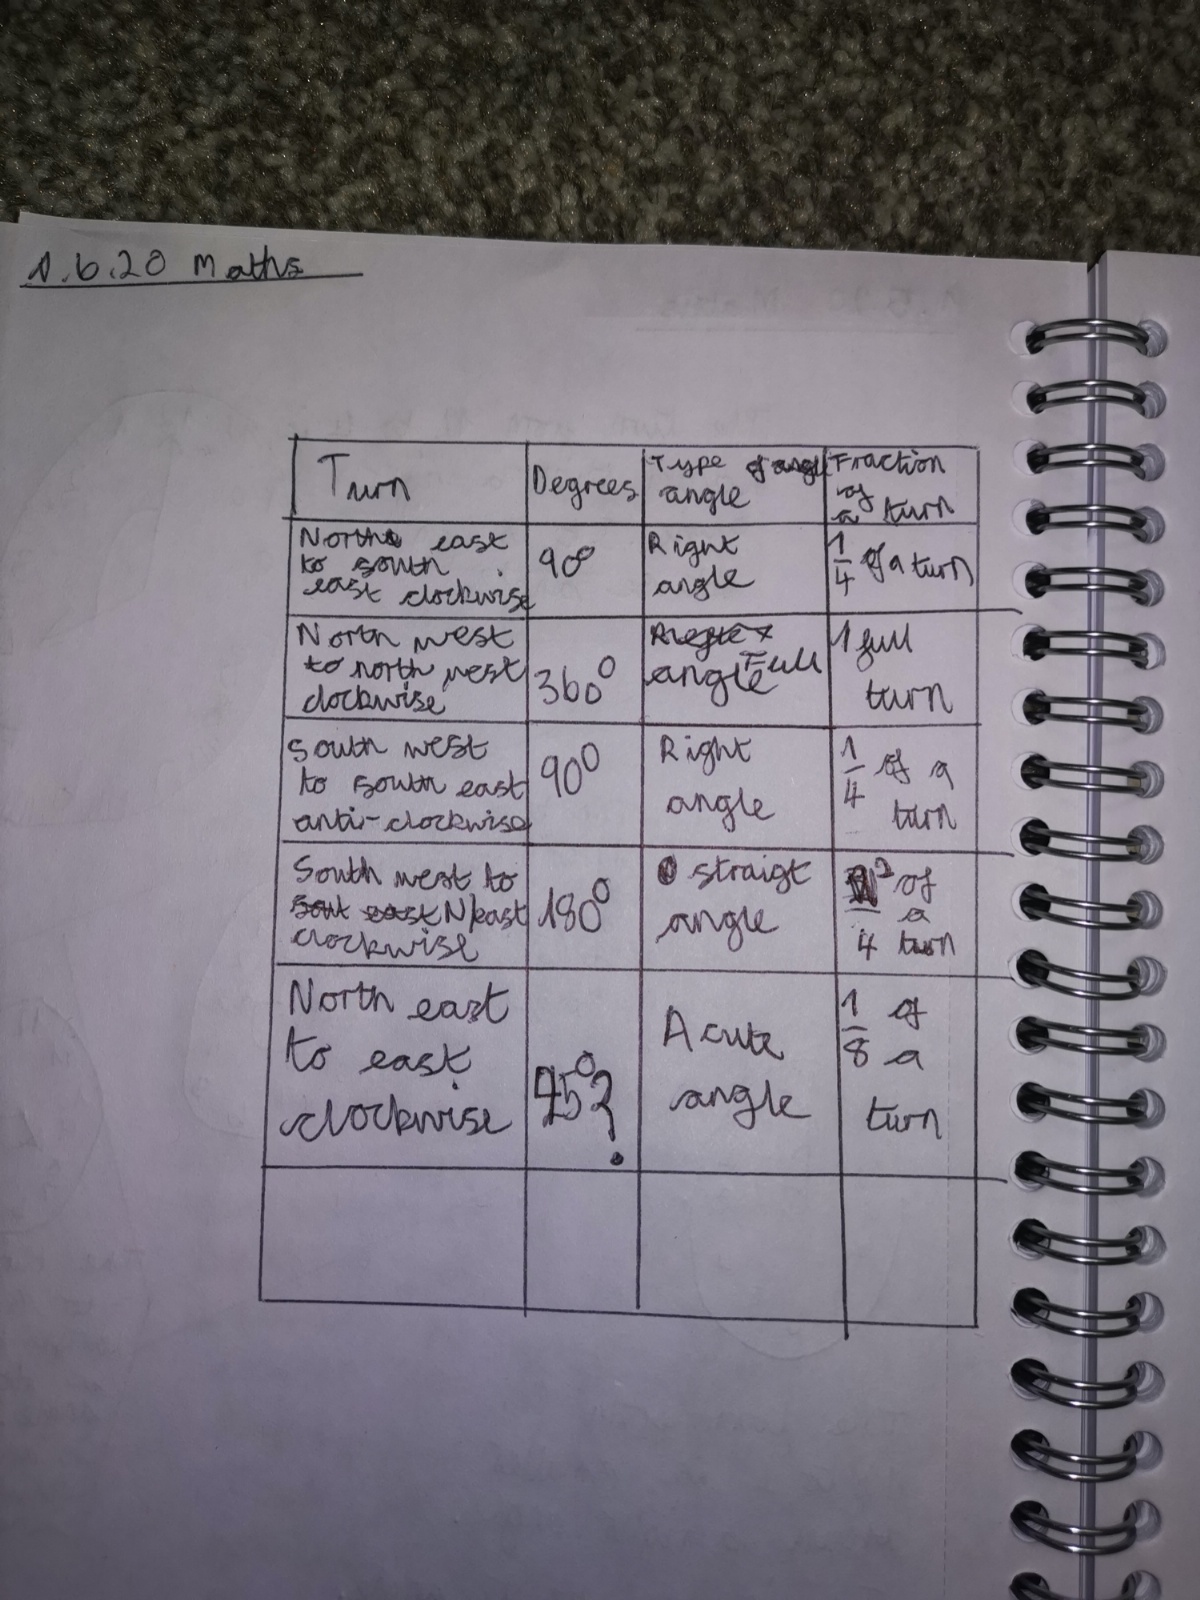 1.6.20 Maths
Turn
Degrees
Type of angl
angle
Fraction
of
a turn
North east
to south
east clockwise
90°
Right
angle
1/4 of a turn
North west
to north west
clockwise
360°
Reflex
angle Full
1 full
turn
South west
to south east
anti-clockwise
90°
Right
angle
1/4 of a
turn
South west to
sout east N/east
clockwise
180°
straigt
angle
2/4 of
a
turn
North east
to east
clockwise
45°?
Acute
angle
1/8 of
a
turn